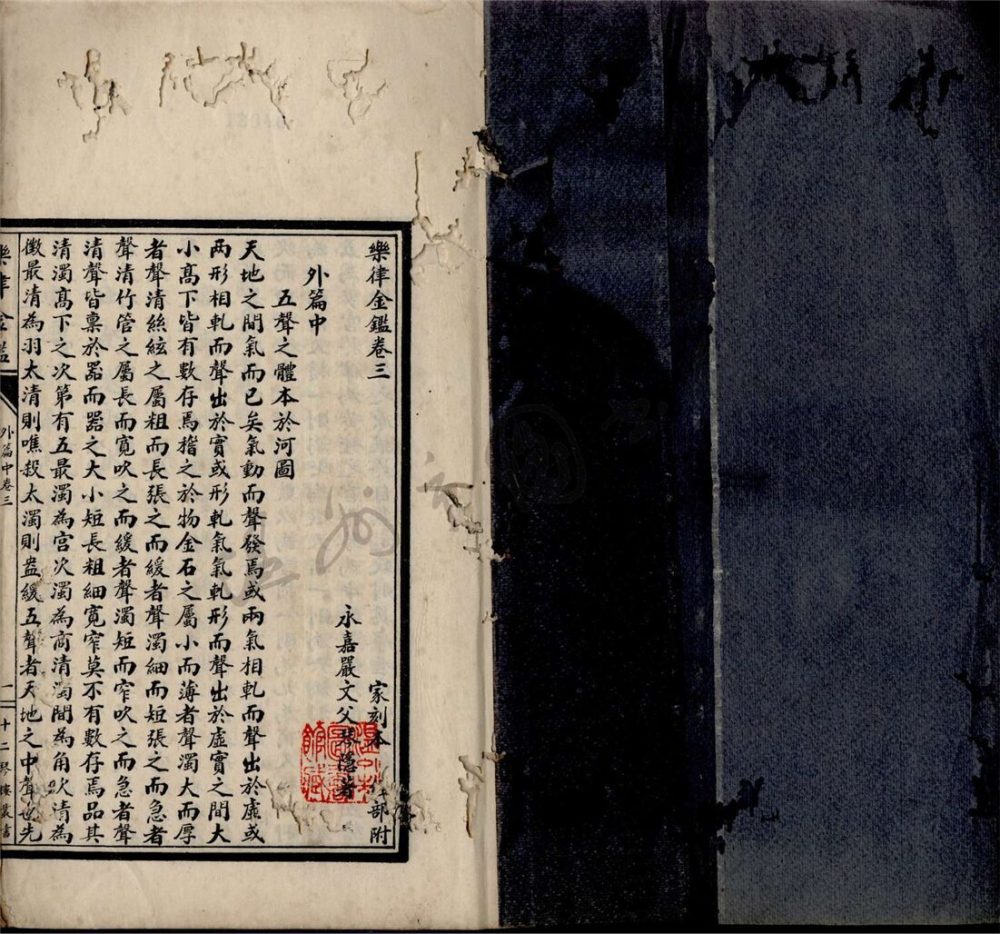 樂律金鑑卷三 家刻本 部附
外篇中 永嘉嚴文父琴隱著
五聲之體本於河圖
天地之間氣而已矣氣動而聲發焉或兩氣相軋而聲出於虛或
兩形相軋而聲出於實或形軋氣氣軋形而聲出於虛實之間大
小高下皆有數存焉稽之於物金石之屬小而薄者聲濁大而厚
者聲清絲絃之屬粗而長張之而緩者聲濁細而短張之而急者
聲清竹管之屬長而寬吹之而緩者聲濁短而窄吹之而急者聲
清聲皆稟於器而器之大小短長粗細寬窄莫不有數存焉品其
清濁高下之次第有五最濁為宮次濁為商清濁間為角次清為
徵最清為羽太清則噍殺太濁則嘽緩五聲者天地之中聲也先
樂律金鑑 外篇中卷三 一 十二琴樓叢書
溫州圖書館藏